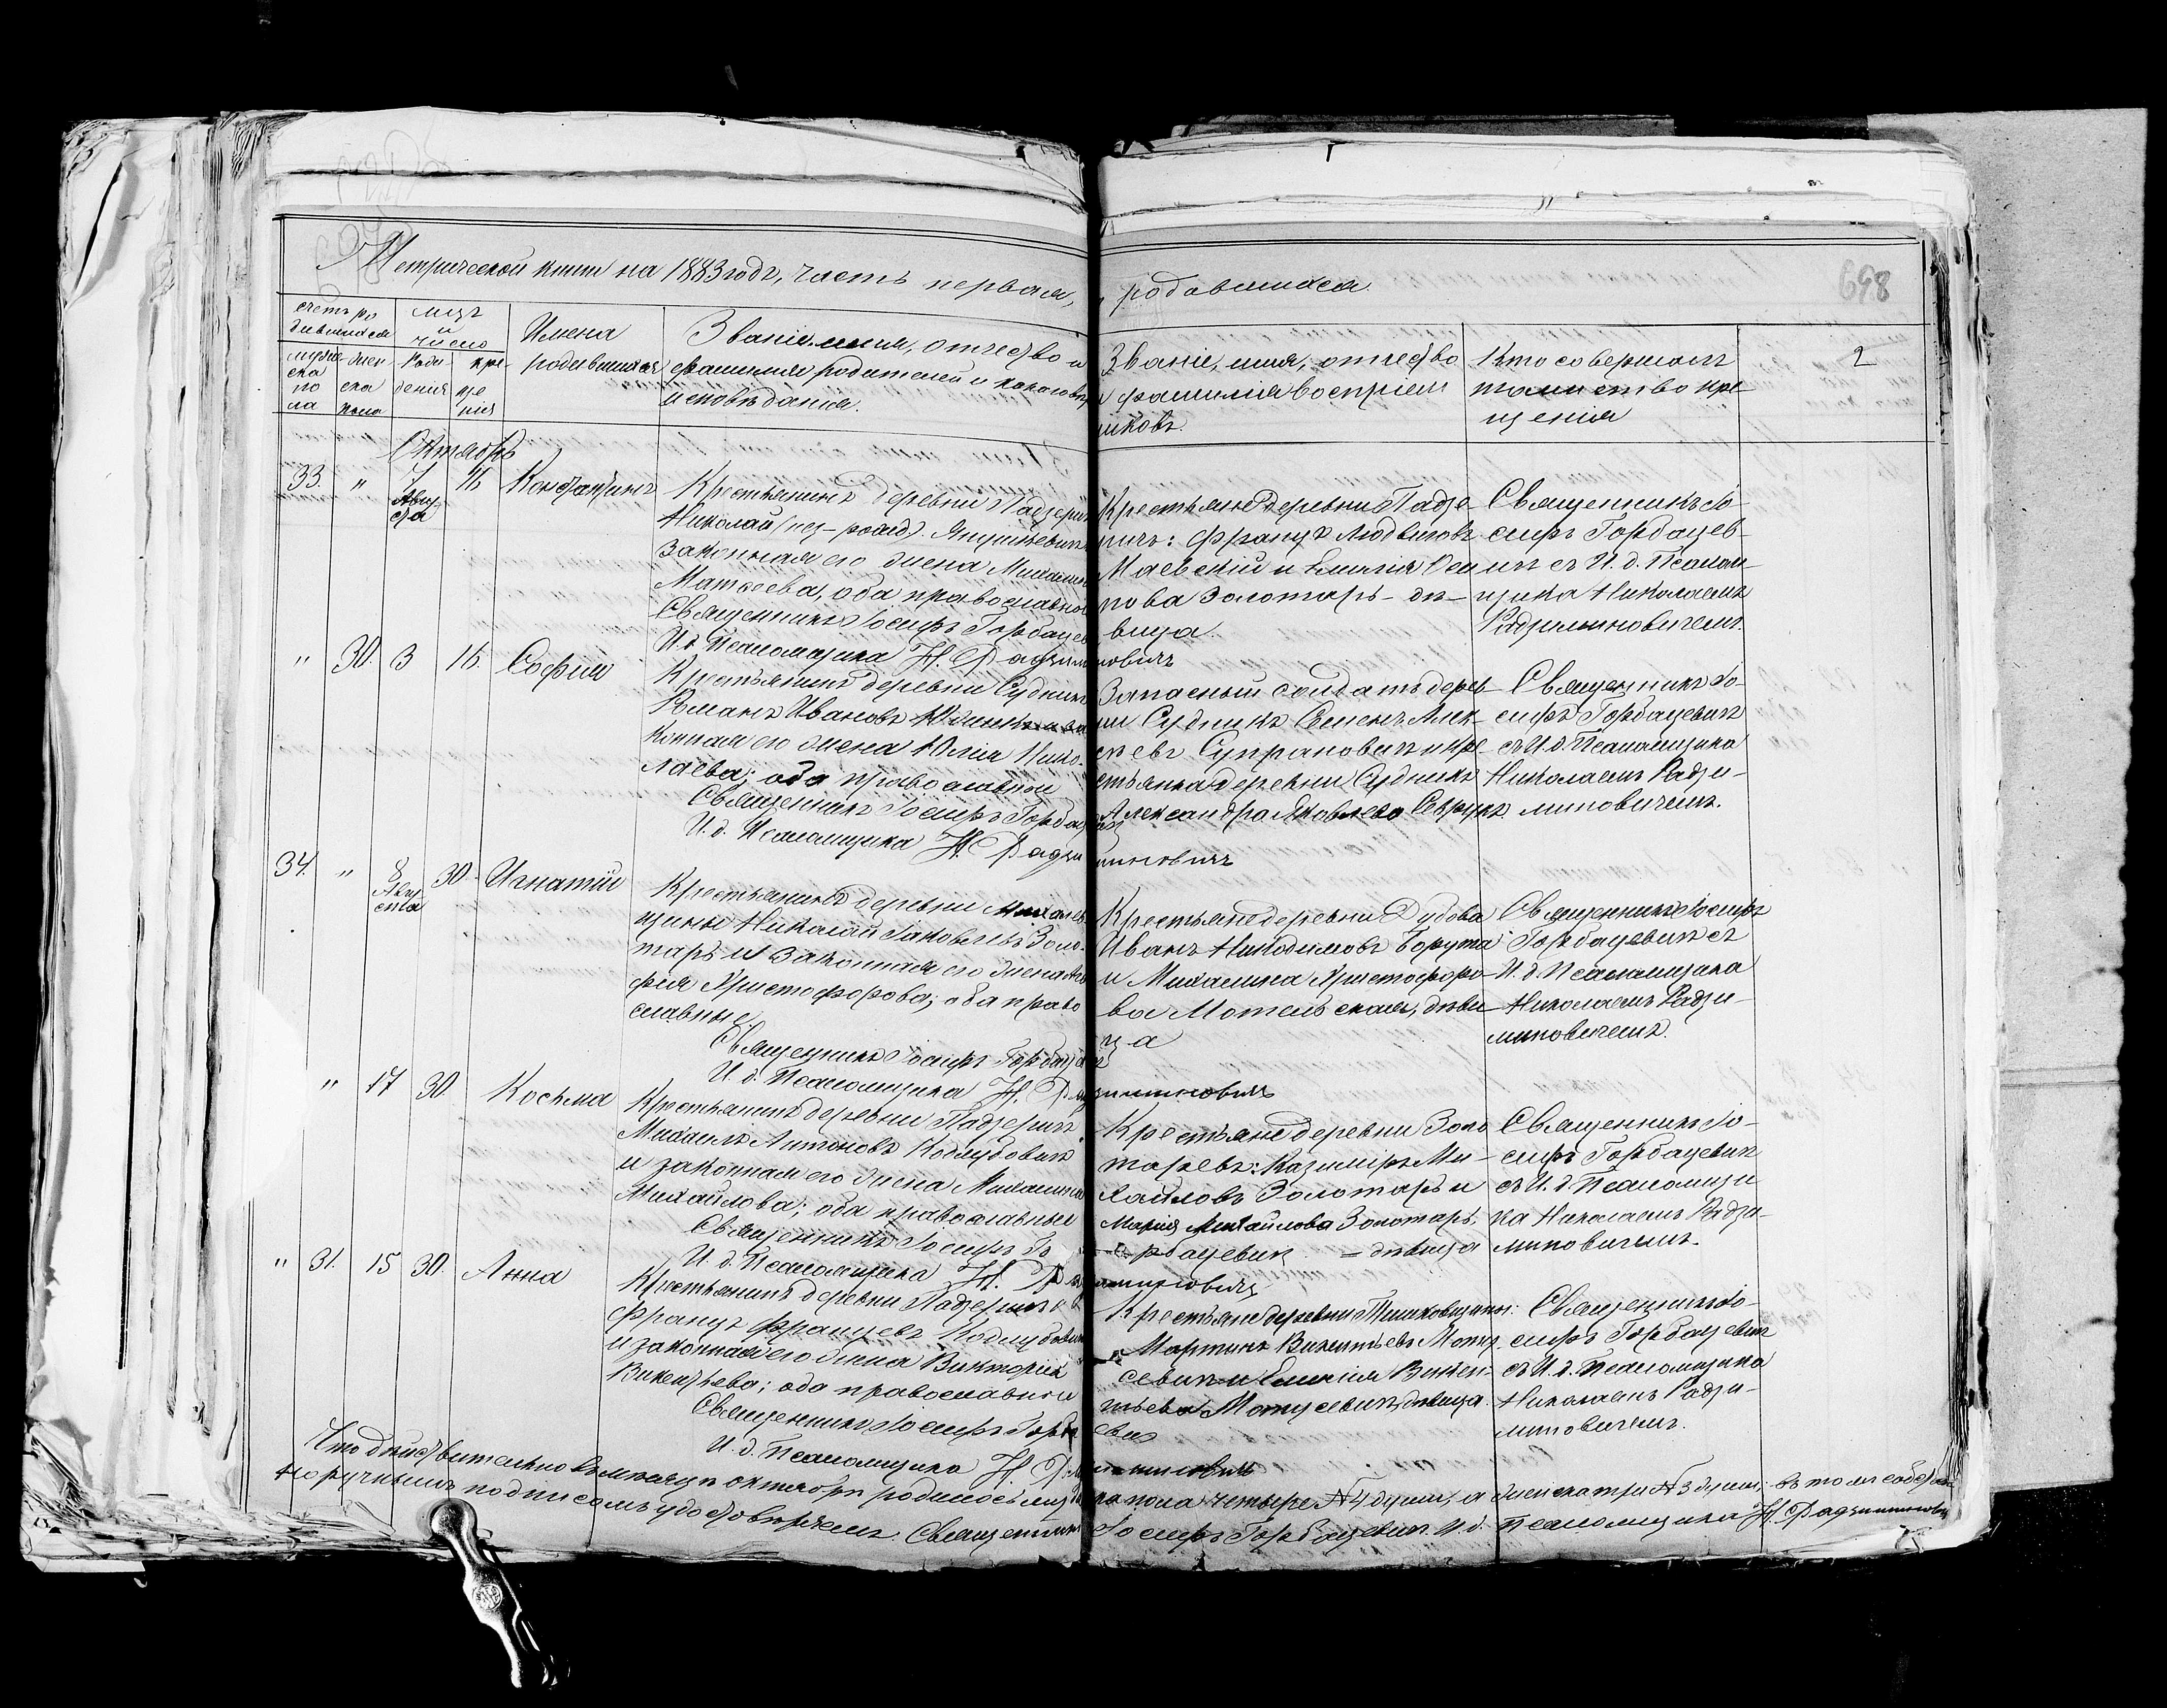 Метрической книги на 1883 годъ, часть первая, о родившихся.
698
счетъ ро
дившихся
муже
ска
по
ла
жен
ска
пола
мцъ
и
число
рож
дения
кре
ще
нія
Имена
родившихся
Званіе, имя, отчество и
фамилия родителей и какого вѣр
исповѣданія.
Званіе, имя, отчество
и фамилія воспріем
никовъ.
Кто совершалъ
таинство кре
щенія
2
Октябрь
33. " 7 16 Константинъ
Авгу
ста
Крестьянинъ деревни Падзеричъ
Николай Янушкевичъ
законная его жена Михалина
Матѳеева, оба православные
Священникъ Іосифъ Горбацевичъ
И. д. Псаломщика Н. Радзиминовичъ
Крестьяне деревни Падзе-
ричъ: Францъ Людвиговъ
Маевскій и Емилія Оси
пова Золотарь - дѣ-
вица.
Священникъ Іо-
сифъ Горбацев-
ичъ съ И. д. Псалом-
щика Николаемъ
Радзиминовичемъ.
" 30. 3 16. Софія
Крестьянинъ деревни Судникъ
Романъ Ивановъ и за
конная его жена Юлія Нико-
лаева; оба православные
Священникъ Іосифъ Горбацевичъ
И. д. Псаломщика Н. Радзиминовичъ
Запасный солдатъ дерев-
ни Судникъ Семенъ Алек-
сѣевъ Супрановичъ и кре-
стьянка деревни Судникъ
Александра Яковлева Севрукъ
Священникъ Іо-
сифъ Горбацевичъ
съ И. д. Псаломщика
Николаемъ Радзи-
миновичемъ.
34. " 8 30. Игнатій
Авгу
ста
Крестьянинъ деревни
щины Николай Іаковлевъ Золо-
тарь и законная его жена
фія Христофорова; оба право
славные
Священникъ Іосифъ Горбацевичъ
И. д. Псаломщика Н. Радзиминовичъ
Крестьяне деревни Дубова
Иванъ Никодимовъ Борута
и Михалина Христофоро-
ва Мотельская, дѣви-
ца
Священникъ Іосифъ
Горбацевичъ съ
И. д. Псаломщика
Николаемъ Радзи-
миновичемъ.
" 17 30. Косьма
Крестьянинъ деревни Падзеричъ
Михаилъ Антоновъ Коцлубовичъ
и законная его жена Михалина
Михайлова; оба православные
Священникъ Іосифъ Горбацевичъ
И. д. Псаломщика Н. Радзиминовичъ
Крестьяне деревни Золо
таревъ: Казиміръ Ми-
хайловъ Золотарь и
Марія Михайлова Золотарь,
- дѣвица
Священникъ Іо-
сифъ Горбацевичъ
съ И. д. Псаломщи
ка Николаемъ Радзи-
миновичемъ.
" 31. 15 30. Анна
Крестьянинъ деревни Падзеричъ
Францъ Францевъ Коцлубовичъ
и законная его жена Викторія
Викентьева; оба православные
Священникъ Іосифъ Горбацевичъ
И. д. Псаломщика Н. Радзиминовичъ
Крестьяне деревни Тишковщины:
Мартинъ Викентьевъ Мату
севичъ и Емилія Викен-
тьева Матусевичъ, дѣвица.
Священникъ Іо-
сифъ Горбацевичъ
съ И. д. Псаломщика
Николаемъ Радзи-
миновичемъ.
Что дѣйствительно въ мѣсяцѣ октябрѣ родилось мужска пола четыре №4 души, а женска три №3 души; въ томъ собствен
норучнымъ подписомъ удостовѣряемъ. Священникъ Іосифъ Горбацевичъ И. д. Псаломщика Н. Радзиминовичъ